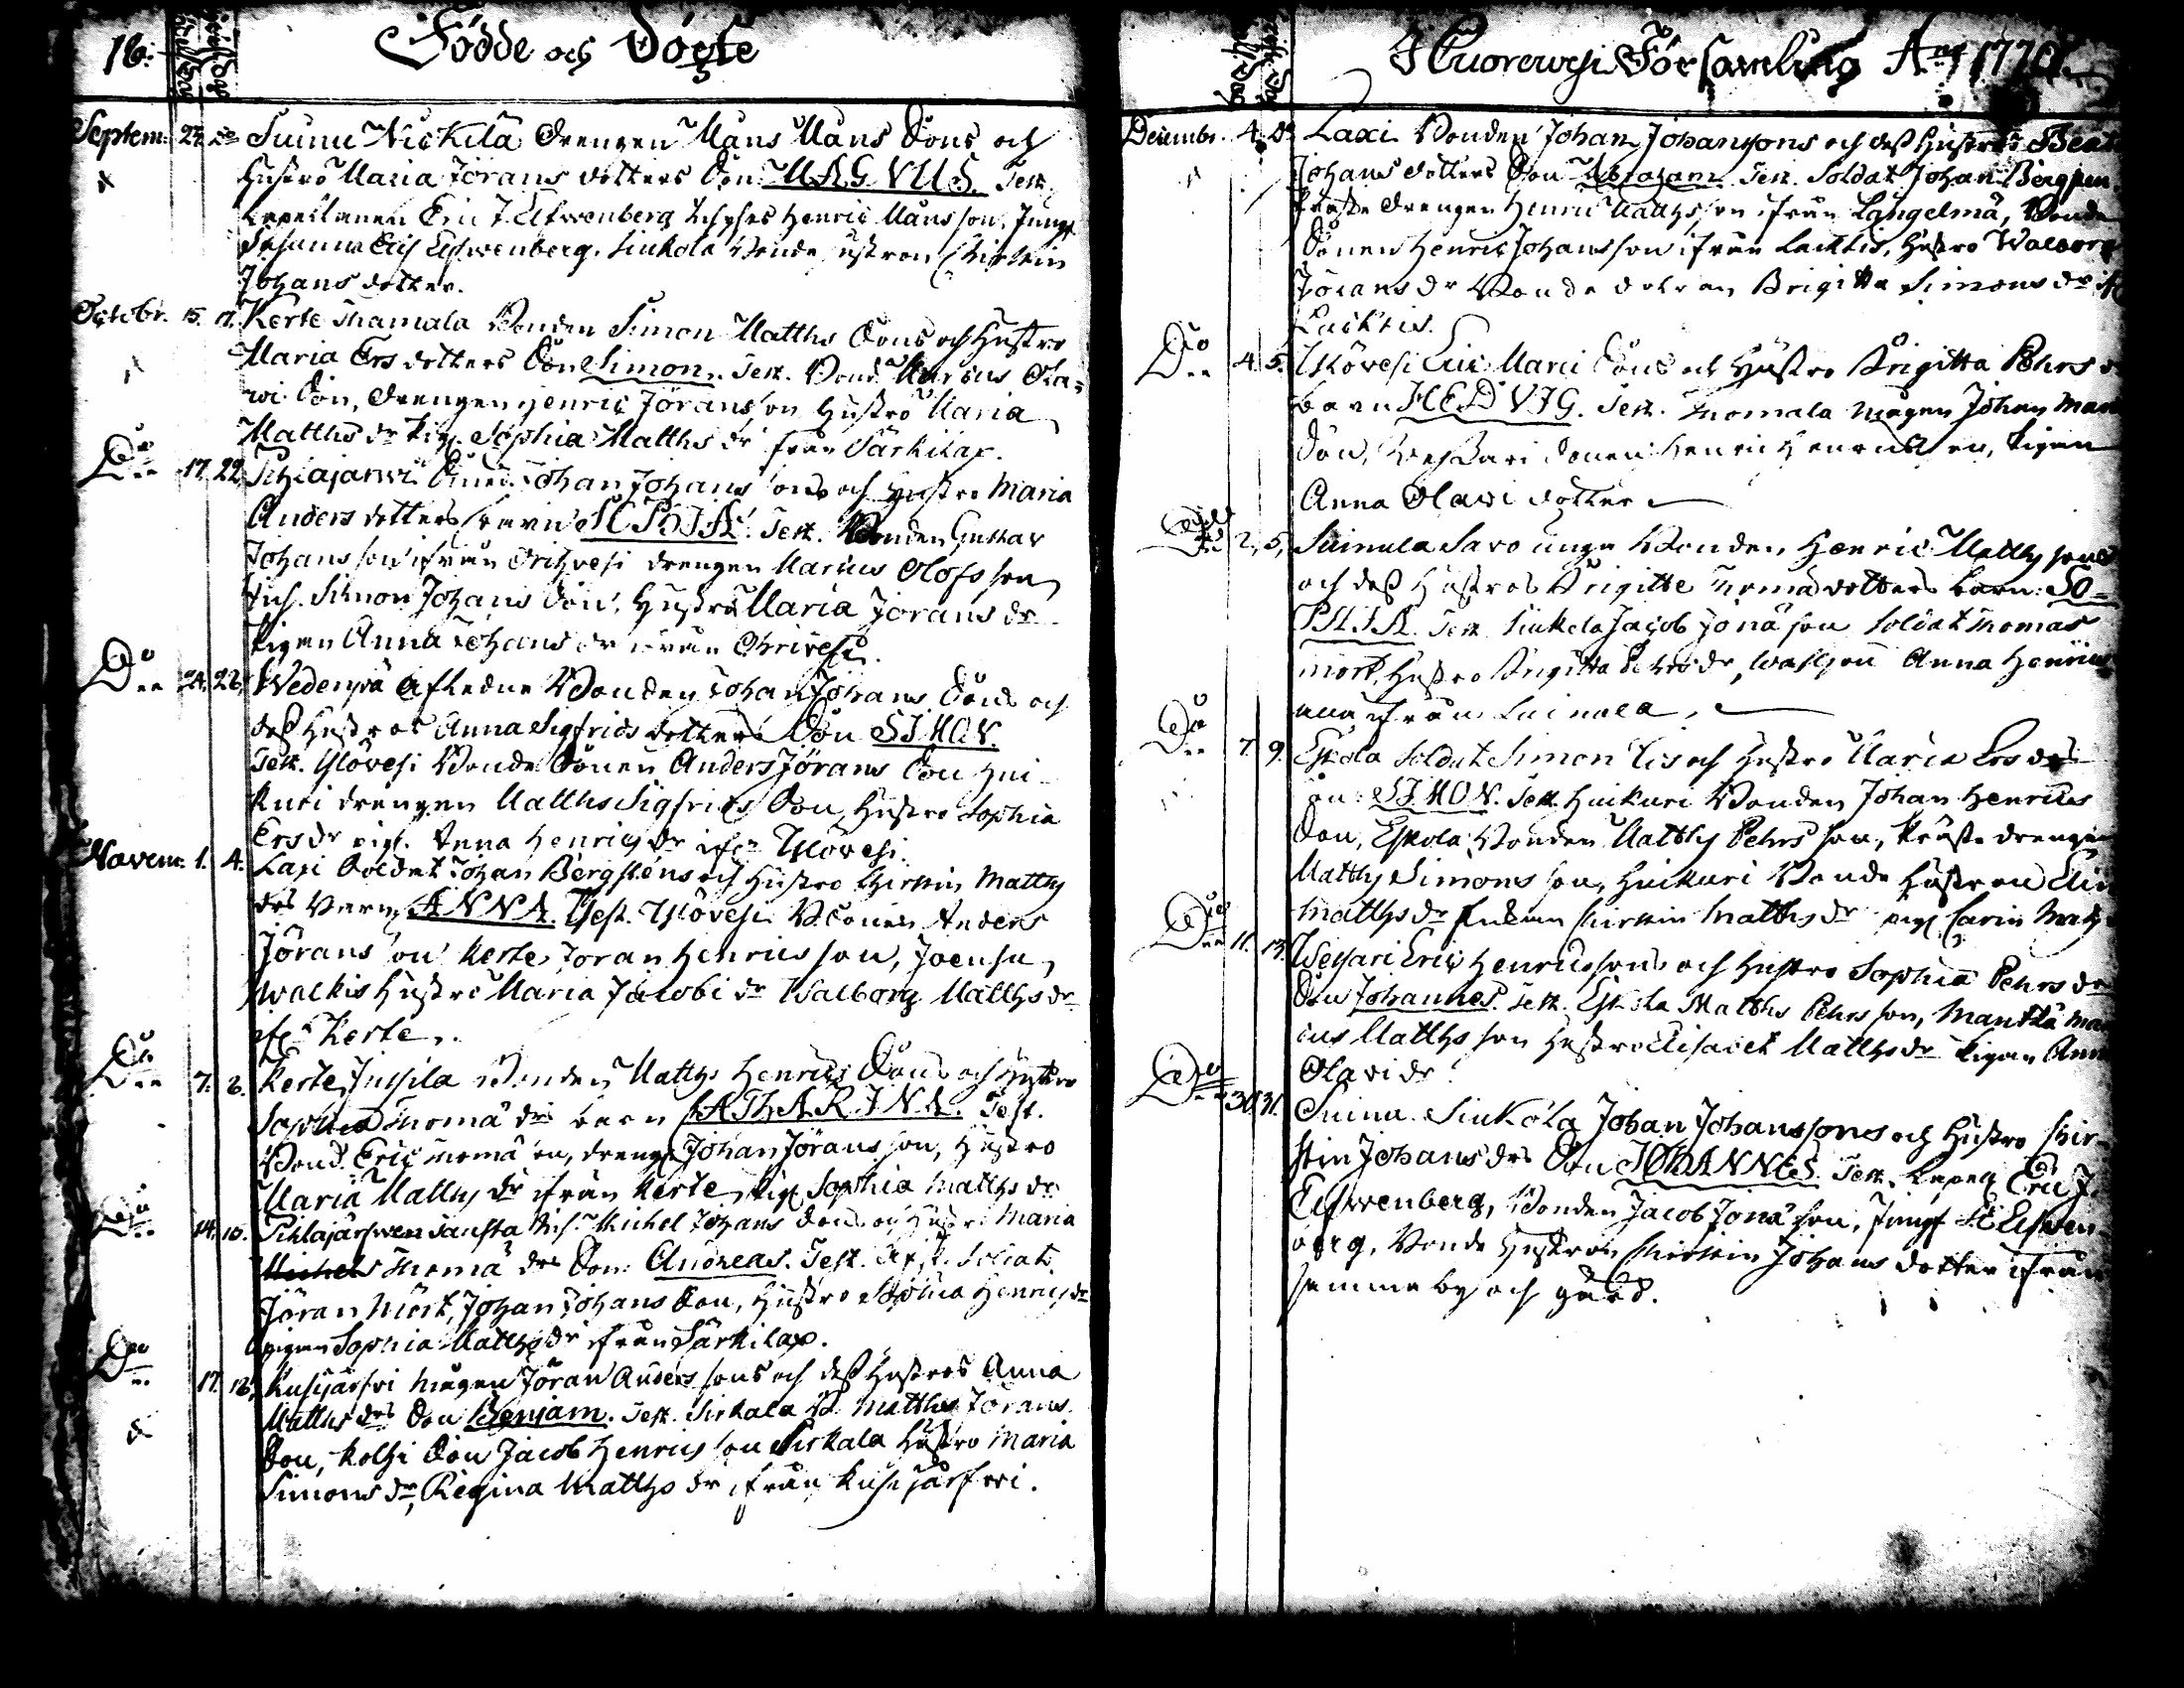 16. Födde och Döpte
Septem: 23 Do Suinu Nickilä drengen Måns Måns Sons och
Hustro Maria Jörans dotters Son MAGNUS. Test.
Capellanen Eric J. Elfwenberg Henric Månsson, Jungf
Susanna Elfwenberg. Siukola Bonde hustron Christin
Johans dotter.
Octobr. 15. 17. Kerte Thamala Bonden Simon Matths Sons och Hustro
Maria Ers dotters Son Simon. Test. Bond. Marcus Ola-
wi Son, drengen Henric Jöransson Hustro Maria
Matths dr Pig. Sophia Matths dr från Särkilax.
Do 17. 22. Pihlajarwi Johan Johans sons och Hustro Maria
Anders dotters barn SOPHIA. Test. Bonden Gustav
Johansson ifrån Orihvesi drengen Marcus Olofsson
Inh. Simon Johans Son, Hustro Maria Jörans dr
Pigan Anna Johans dr ifrån Orivesi.
Do 24. 28. Wedenpä afledne Bonden Johan Johans Sons och
dess Hustros Anna Sigfrids dotters Son SIMON.
Test. Ylövesi Bonde Sonen Anders Jörans Son Hui-
kuri drengen Matths Sigfrids Son, Hustro Sophia
Ers dr pig. Anna Henrics dr ifr Ylövesi.
Novem: 1. 4. Laxi Soldat Johan Bergsténs och Hustro Christin Matths
drs Barn ANNA. Test. Ylövesi B Sonen Anders
Jörans son Kerte Joran Henricsson, Joensu,
Walkis Hustro Maria Jacobi dr Walborg Matths dr
ifr Kerte.
Do 7. 8. Kerte Jussila Bonden Matths Henrics Sons och Hustro
Sophia Thoma drs barn CATHARINA. Test.
Bond. Eric Thoma son, dreng. Johan Jöransson, Hustro
Maria Matths dr ifrån Kerte, Pig Sophia Matths dr.
Do 14. 15. Pihlajärfwen Inh. Michel Johans Sons och Hustro Maria
Michels Thoma drs Son: Andreas. Test. Soldat
Jöran Mört, Johan Johans Son, Hustro Sophia Henrics dr
pigan Sophia Matths dr ifrån Särkilax.
Do 17. 18. Kusijärfwi mågen Jöran Anderssons och dess Hustros Anna
Matths drs Son Benjam. Test. Sirkala B. Matths Jörans
Son, Kolhi Son Jacob Henricsson Sirkala Hustro Maria
Simons dr, Regina Matths dr ifrån Kusijärfwi.
I Kuorewesi Församling Ao 1770.
Decembr. 4. Do Laxi Bonden Johan Johanssons och dess Hustros Beat
Johans dotters Son Abraham. Test. Soldat Johan Bergsten.
drengen Henric Matthsson ifrån Längelmä, Bonde
Sonen Henric Johansson ifrån Lacktis, Hustro Walborg
Jörans dr Bonde dotran Brigitta Simons dr ifr
Lacktis.
Do 4. 5. Ylövesi Eric Marci Sons och Hustro Brigitta Pehrs d
barn HEDVIG. Test. Thomala mågen Johan Mar
Son, Weijari Sonen Henric Henricsson, Pigan
Anna Olawi dotter
Do 2. 5. Suinula Savo unge Bonden Henric Matthssons
och dess Hustros Brigitte Thoma dotters barn: SO-
PHIA. Test. Siukola Jacob Jonasson Soldat Thomas
Mört, Hustro Brigitta Pehrs dr, Anna Henrics
ifrån Suinula.
Do 7. 9. Eskola Soldat Simon Lis och Hustro Maria Ers drs
Son: SIMON. Test. Huikuri Bonden Johan Henrics
Son, Eskola Bonden Matths Pehrsson, drengen
Matths Simons son, Huikuri Bonde Hustron Elin
Matths dr Enkan Christin Matths dr pig. Carin Matths
Do 11. 13. Weijari Eric Henricssons och Hustro Sophia Pehrs drs
Son Johannes. Test. Eskola Matths Pehrsson, Manttä Mar
cus Matthsson Hustro Elisabet Matths dr Pigan Anna
Olawi dr.
Do 30. 31. Suinu Siukola Johan Johanssons och Hustro Chir-
stin Johans drs Son JOHANNES. Test. Capell. Eric J.
Elfwenberg, Bonden Jacob Jonasson, Jungf Elfwen-
berg, Bonde Hustron Christin Johans dotter ifrån
samma by och gård.